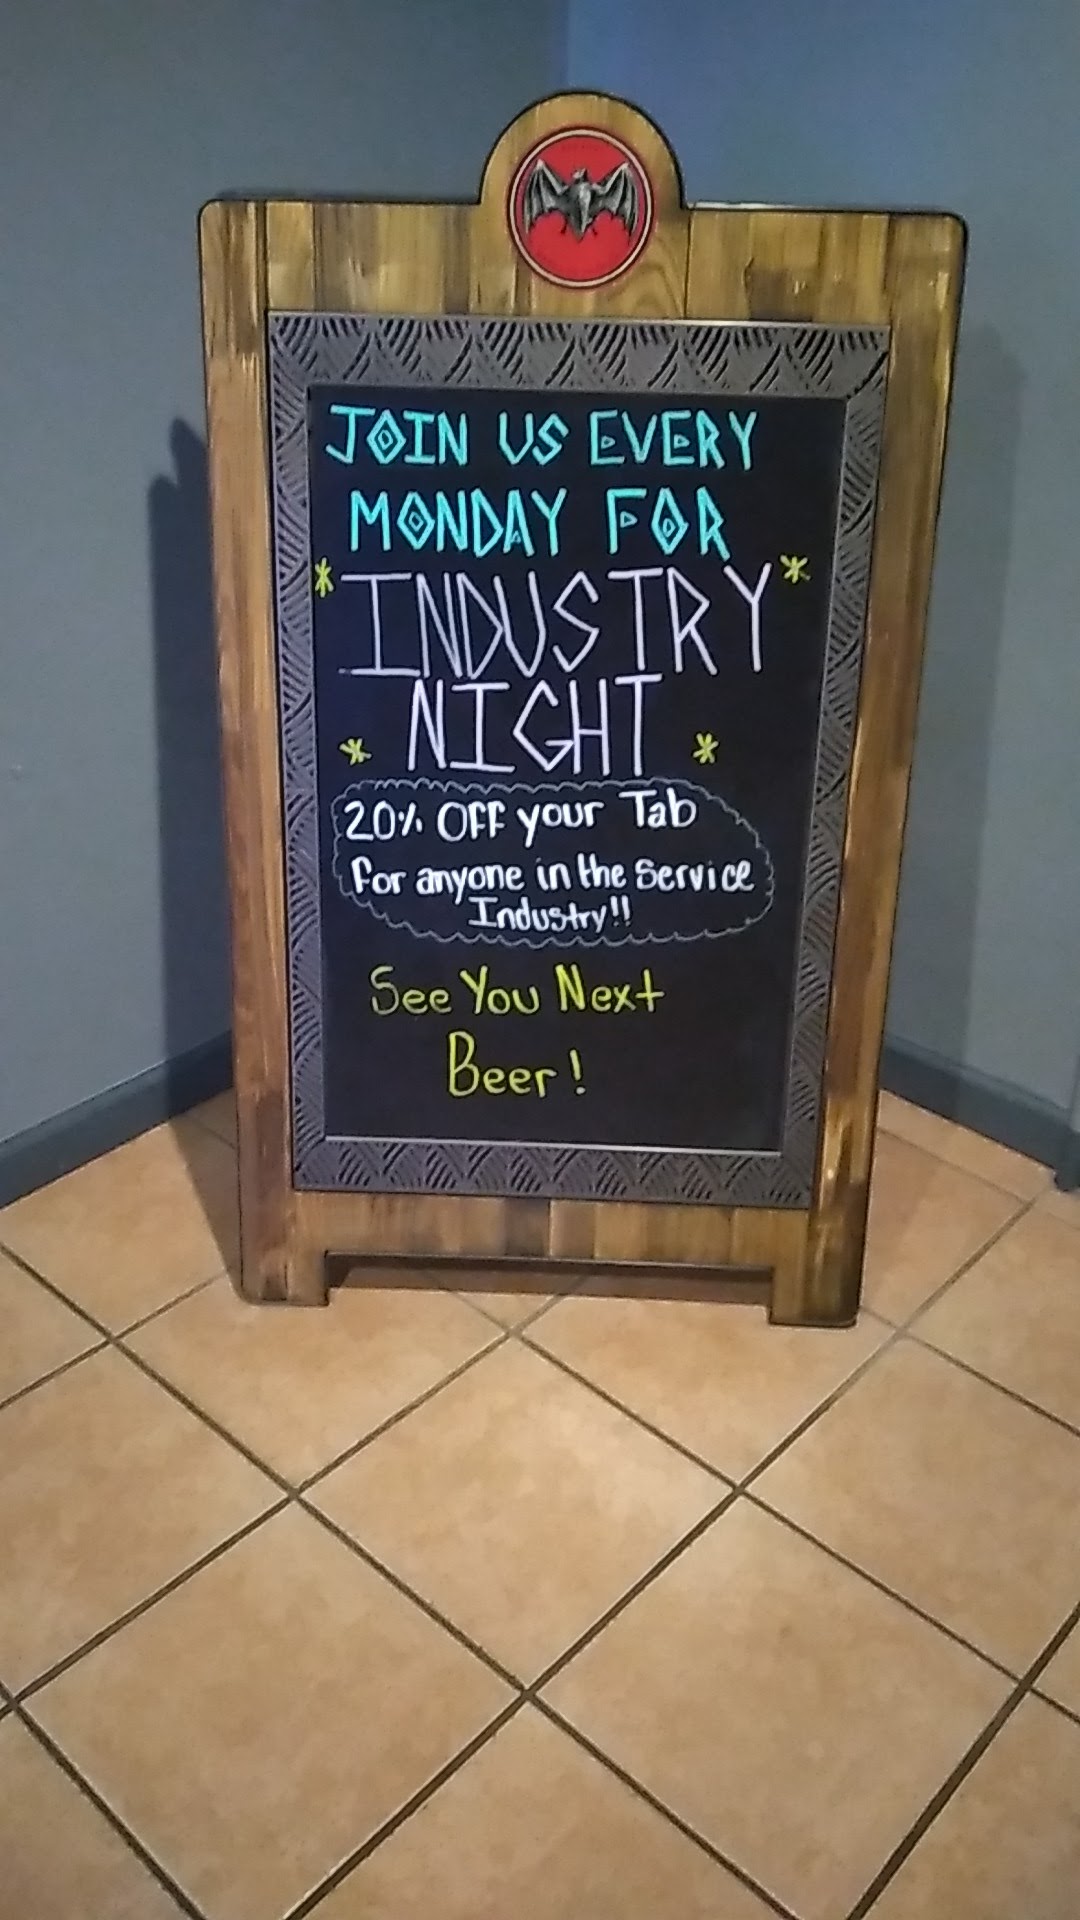 JOIN US EVERY
MONDAY FOR
*INDUSTRY*
* NIGHT *
20% OFF your Tab
For anyone in the Service
Industry!!
See You Next
Beer!